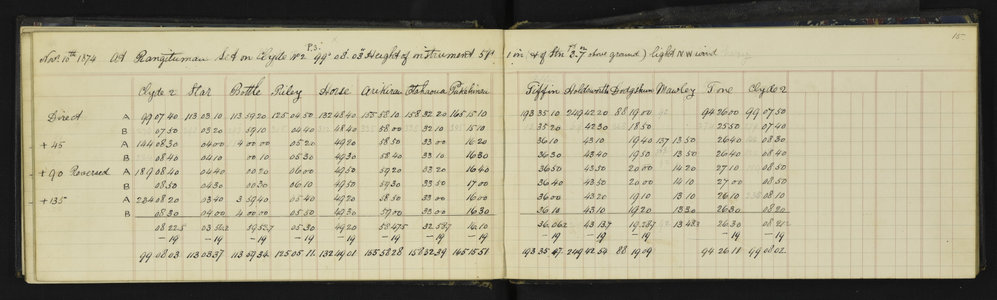 15.
P.S.
Nov. 10th 1874 At Rangitumau Set on Clyde No 2 99° 08' 03" Height of instrument 5ft 1 in & of Stn 2.7 above ground) light N W wind
Clyde 2 Star Bottle Riley Horse Pukehinau Tiffin Holdsworth Dodgshun Mawley Tone Clyde 2
Direct A 99 07 40 113 03 10 113 59 20 125 04 50 132 48 40 155 58 10 158 32 20 165 15 10 193 35 10 249 42 20 88 19 00 94 26 00 99 07 50
B 07 50 03 20 59 10 04 40 48 40 58 00 32 10 15 10 35 20 42 30 18 50 25 50 07 40
+ 45 A 144 08 30 04 00 4 00 00 05 20 49 20 58 50 33 00 16 20 36 10 43 10 19 40 137 13 50 26 40 08 30
B 08 40 04 10 00 10 05 30 49 30 58 40 33 10 16 30 36 30 43 40 19 50 13 50 26 40 08 40
+ 90 Reversed A 189 08 40 04 40 00 20 06 00 49 50 59 20 33 20 16 40 36 50 43 50 20 00 14 20 27 10 08 50
B 08 50 04 30 00 30 06 10 49 50 59 30 33 50 17 00 36 40 43 50 20 00 14 10 27 00 08 50
+ 135 A 234 08 20 03 40 3 59 40 05 40 49 20 58 50 33 00 16 00 36 00 43 20 19 10 13 10 26 10 08 10
B 08 30 04 00 4 00 00 05 50 49 30 59 00 33 00 16 30 36 10 43 10 19 20 13 30 26 30 08 20
08 22.5 59 52.7 05 30 49 20 58 47.5 32 58.7 16,10 36.06.2 43 13.7 19.28.7 13 48.3 26.30
- 19 - 19 - 19 - 19 - 19 - 19 - 19 - 19 - 19 - 19 - 19 - 19 - 19
99 08 03 113 03 37 113 59 34 125 05 11 132 49 01 155 58 28 158 32 39 165 15 51 193 35 47 249 42 54 88 19 09 94 26 11 99 08 02